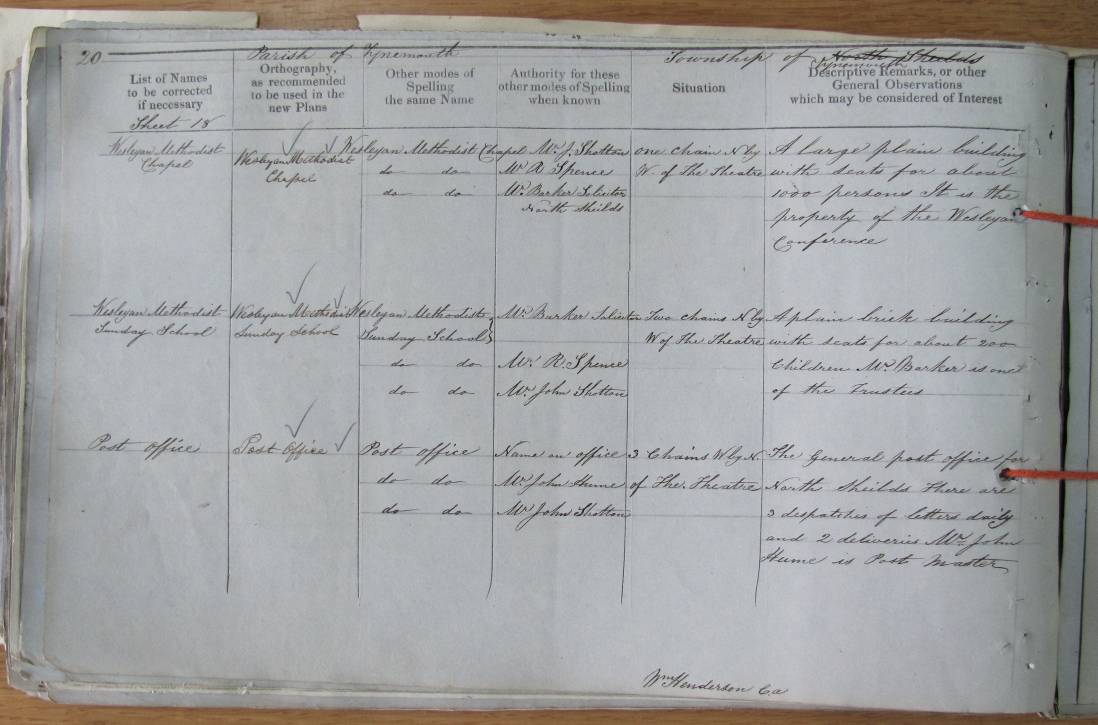 20
Parish of Tynemouth
Township of North Sheilds
Tynemouth
List of Names
to be corrected
if necessary
Orthography,
as recommended
to be used in the
new Plans
Other modes of
Spelling
the same Name
Authority for these
other modes of Spelling
when known
Situation
Descriptive Remarks, or other
General Observations
which may be considered of Interest
Sheet 18
Wesleyan Methodist
Chapel
Wesleyan Methodist
Chapel
Wesleyan Methodist Chapel
do do
do do
Mr. J. Shotton
Mr. R Spence
Mr. Barker Solicitor
North Sheilds
one chain N by
W. of The Theatre
A large plain building
with seats for about
1000 persons It is the
property of the Wesleyan
Conference
Wesleyan Methodist
Sunday School
Wesleyan Methodist
Sunday School
Wesleyan Methodist
Sunday School
do do
do do
Mr. Barker Solicitor
Mr. R Spence
Mr. John Shotton
Two chains N by
W of the Theatre
A plain brick building
with seats for about 200
Children Mr. Barker is one
of the Trustees
Post office
Post Office
Post office
do do
do do
Name on office
Mr. John Hume
Mr. John Shotton
3 Chains W by N.
of The Theatre
The General post office for
North Sheilds There are
3 despatches of letters daily
and 2 deliveries Mr. John
Hume is Post Master
Wm Henderson Ca